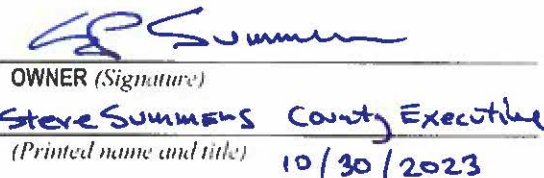 Summers
OWNER (Signature)
Steve Summers County Executive
(Printed name and title) 10/30/2023